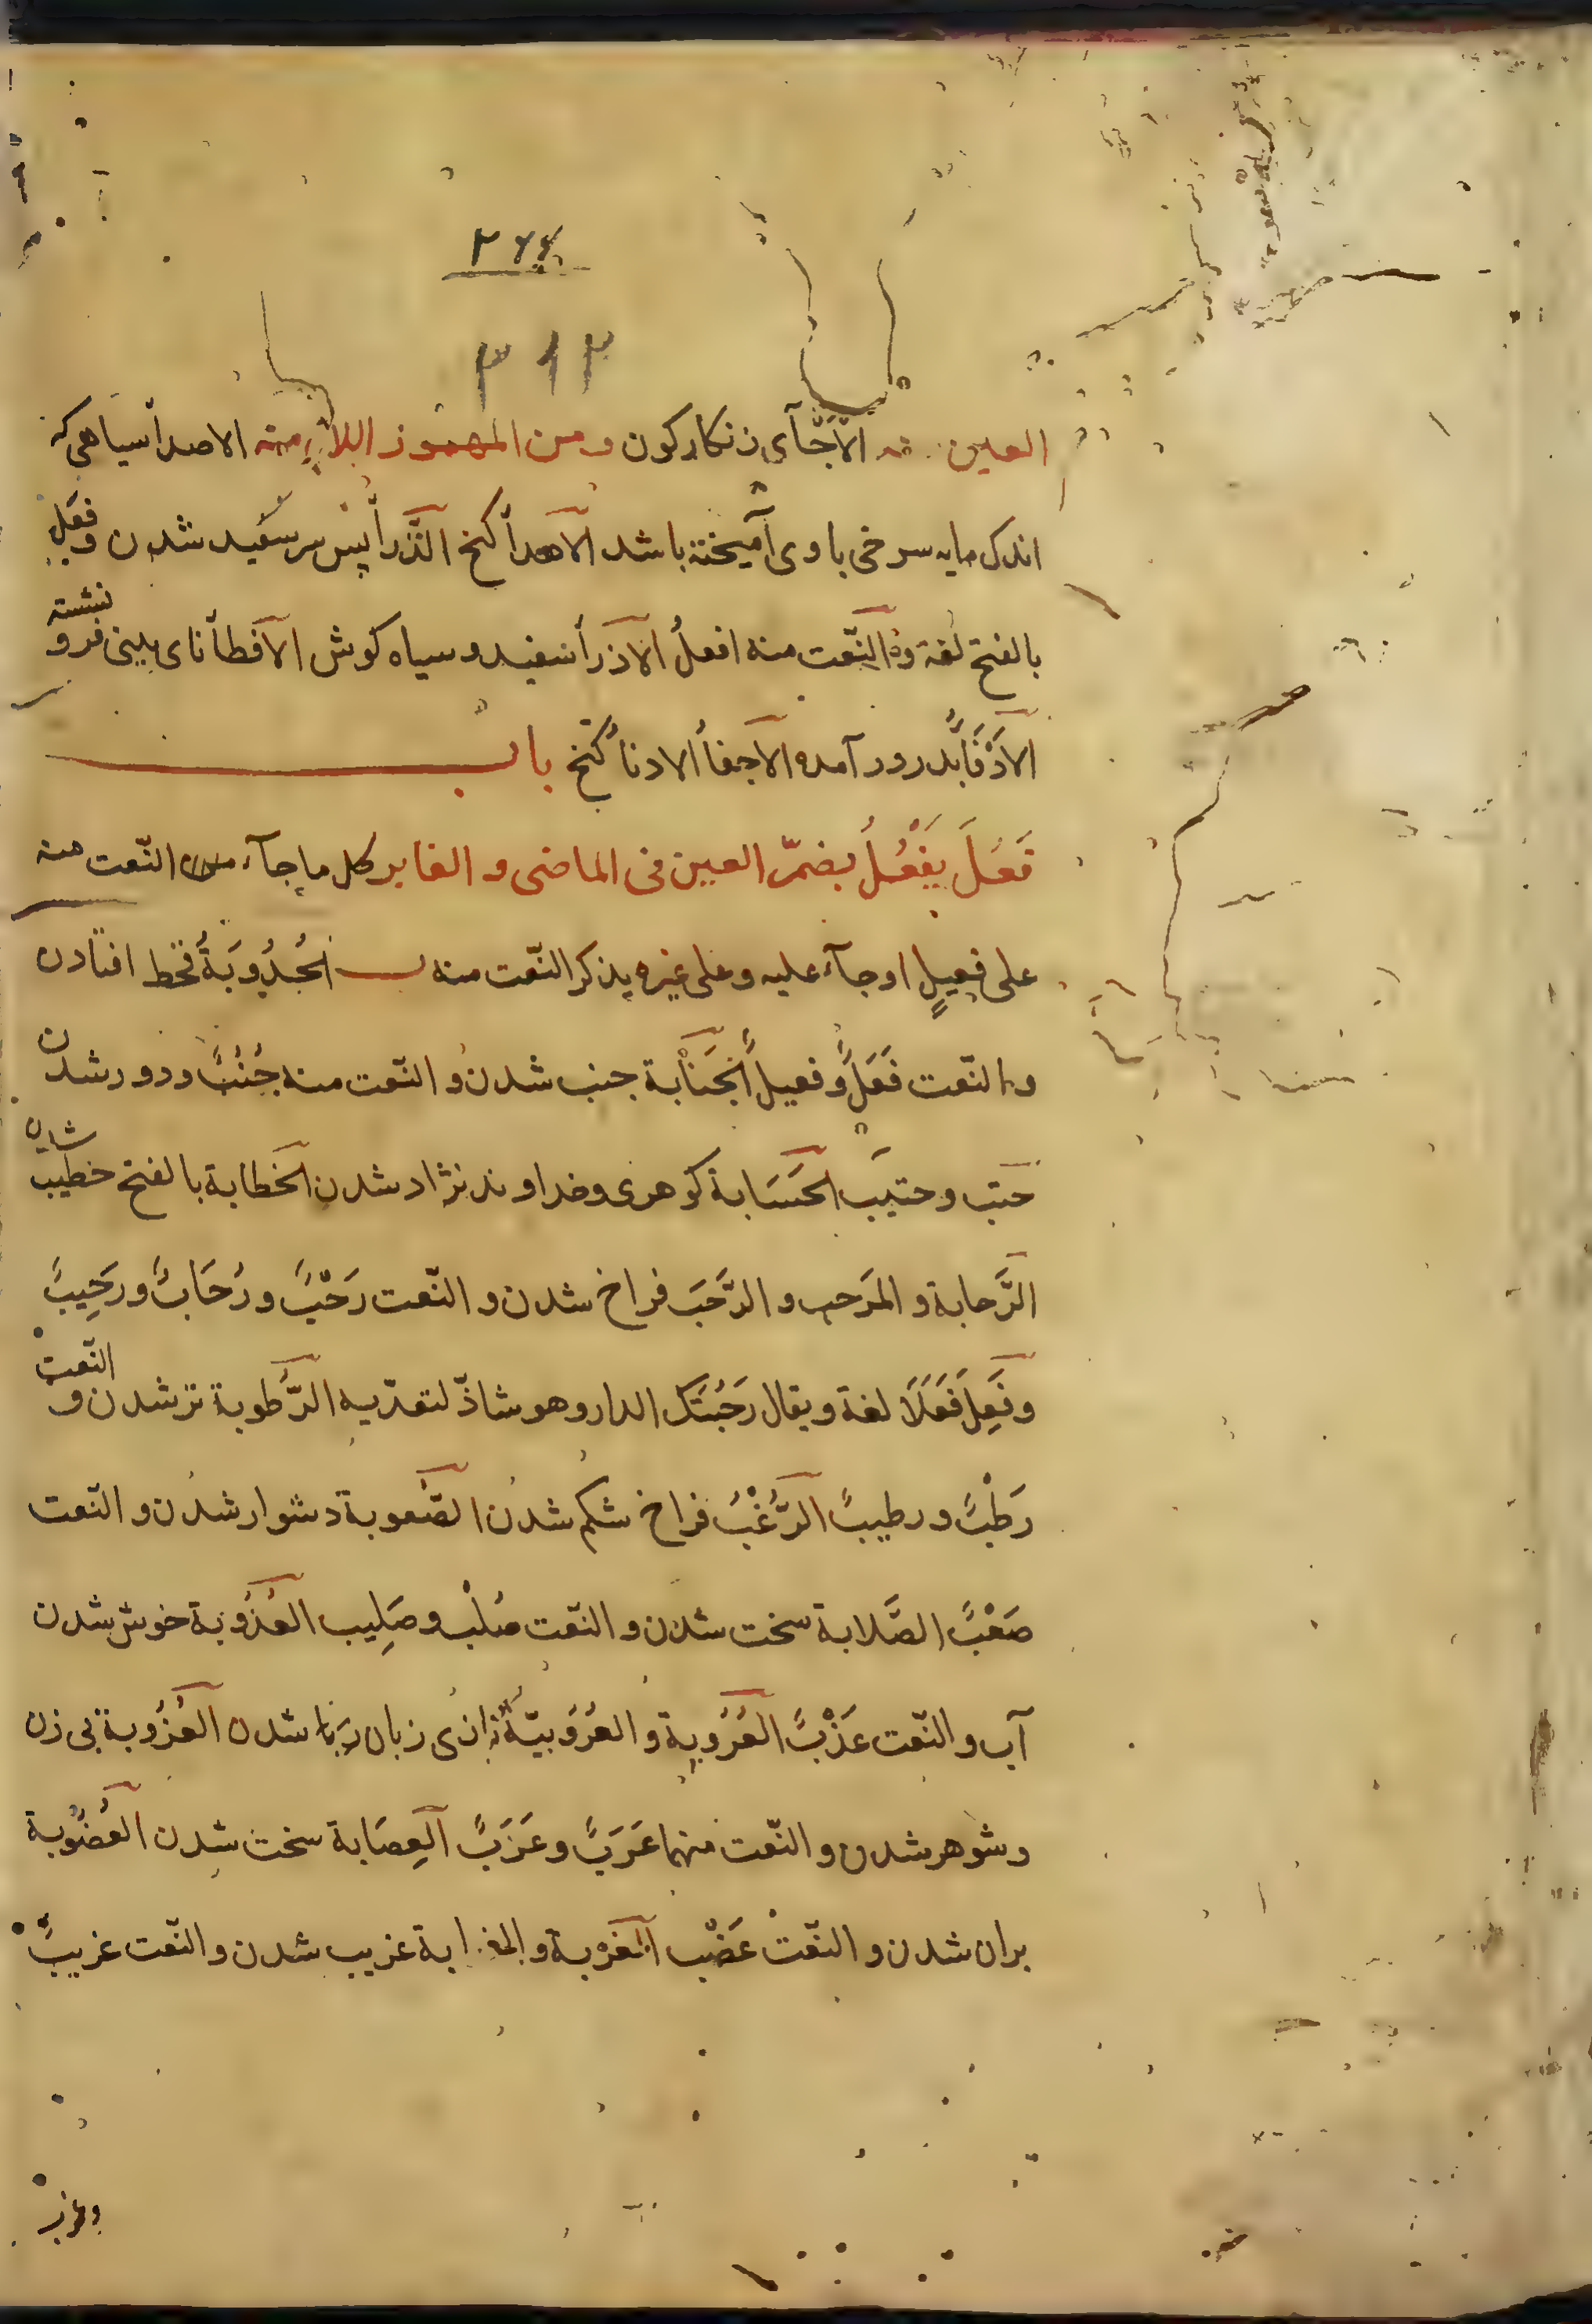 ۲۶۶
۳۱۳
العین منه الأجآی زنکارکون ومن المهموز اللام منه الاصدأ سیاهی که
اندک مایه سرخی باوی آمیخته باشد الاهدأ کنخ الذّرأ پیس سر سفید شدن وفعل
بالفتح لغة والنّعت منه افعلُ الاذرأ سفید و سیاه کوش الافطأ نای بینی فرو نشسته
الأدْفَأ بدرور آمده الاجفأ الادنأ کنخ باب
فَعُلَ یَفْعُلُ بضمّ العین فی الماضی و الغابر کل ما جآء من النّعت منه
علی فعیلٍ اوجآء علیه وعلی غیره یذکر النّعت منه ب الجُدُوبَةُ قحط افتادن
والنّعت فَعَلٌ وفعیلٌ الجَنَابة جنب شدن والنّعت منه جُنُبٌ ودور شدن
جنب وجنیب الحَسَابة کوهری وخداوند نژاد شدن الخطابة بالفتح خطیب شدن
الرَّحابة و المَرحب و الرَّحَب فراخ شدن و النّعت رَحْبٌ و رُحَابٌ و رَحِیبٌ
وفَعِلَ فَعَلًا لغة ویقال رَحُبَتْکَ الدار وهو شاذّ لتعدّیه الرّطوبة تر شدن و النّعت
رَطْبٌ و رطیبٌ الرُّغْبُ فراخ شکم شدن الصّعوبة دشوار شدن و النّعت
صَعْبٌ الصَّلابة سخت شدن و النّعت صُلْب وصَلِیب العُذُوبة خوش شدن
آب و النّعت عَذْبٌ العُرُوبة و العُرُوبیّة تازی زبان شدن العُزُوبة بی زن
وشوهر شدن و النّعت منهما عَرَبٌ وعَزَبٌ العِصَابة سخت شدن العُضُوبة
بران شدن و النّعت عَضْب الغربة و الغرابة غریب شدن و النّعت غریبٌ
وغرب